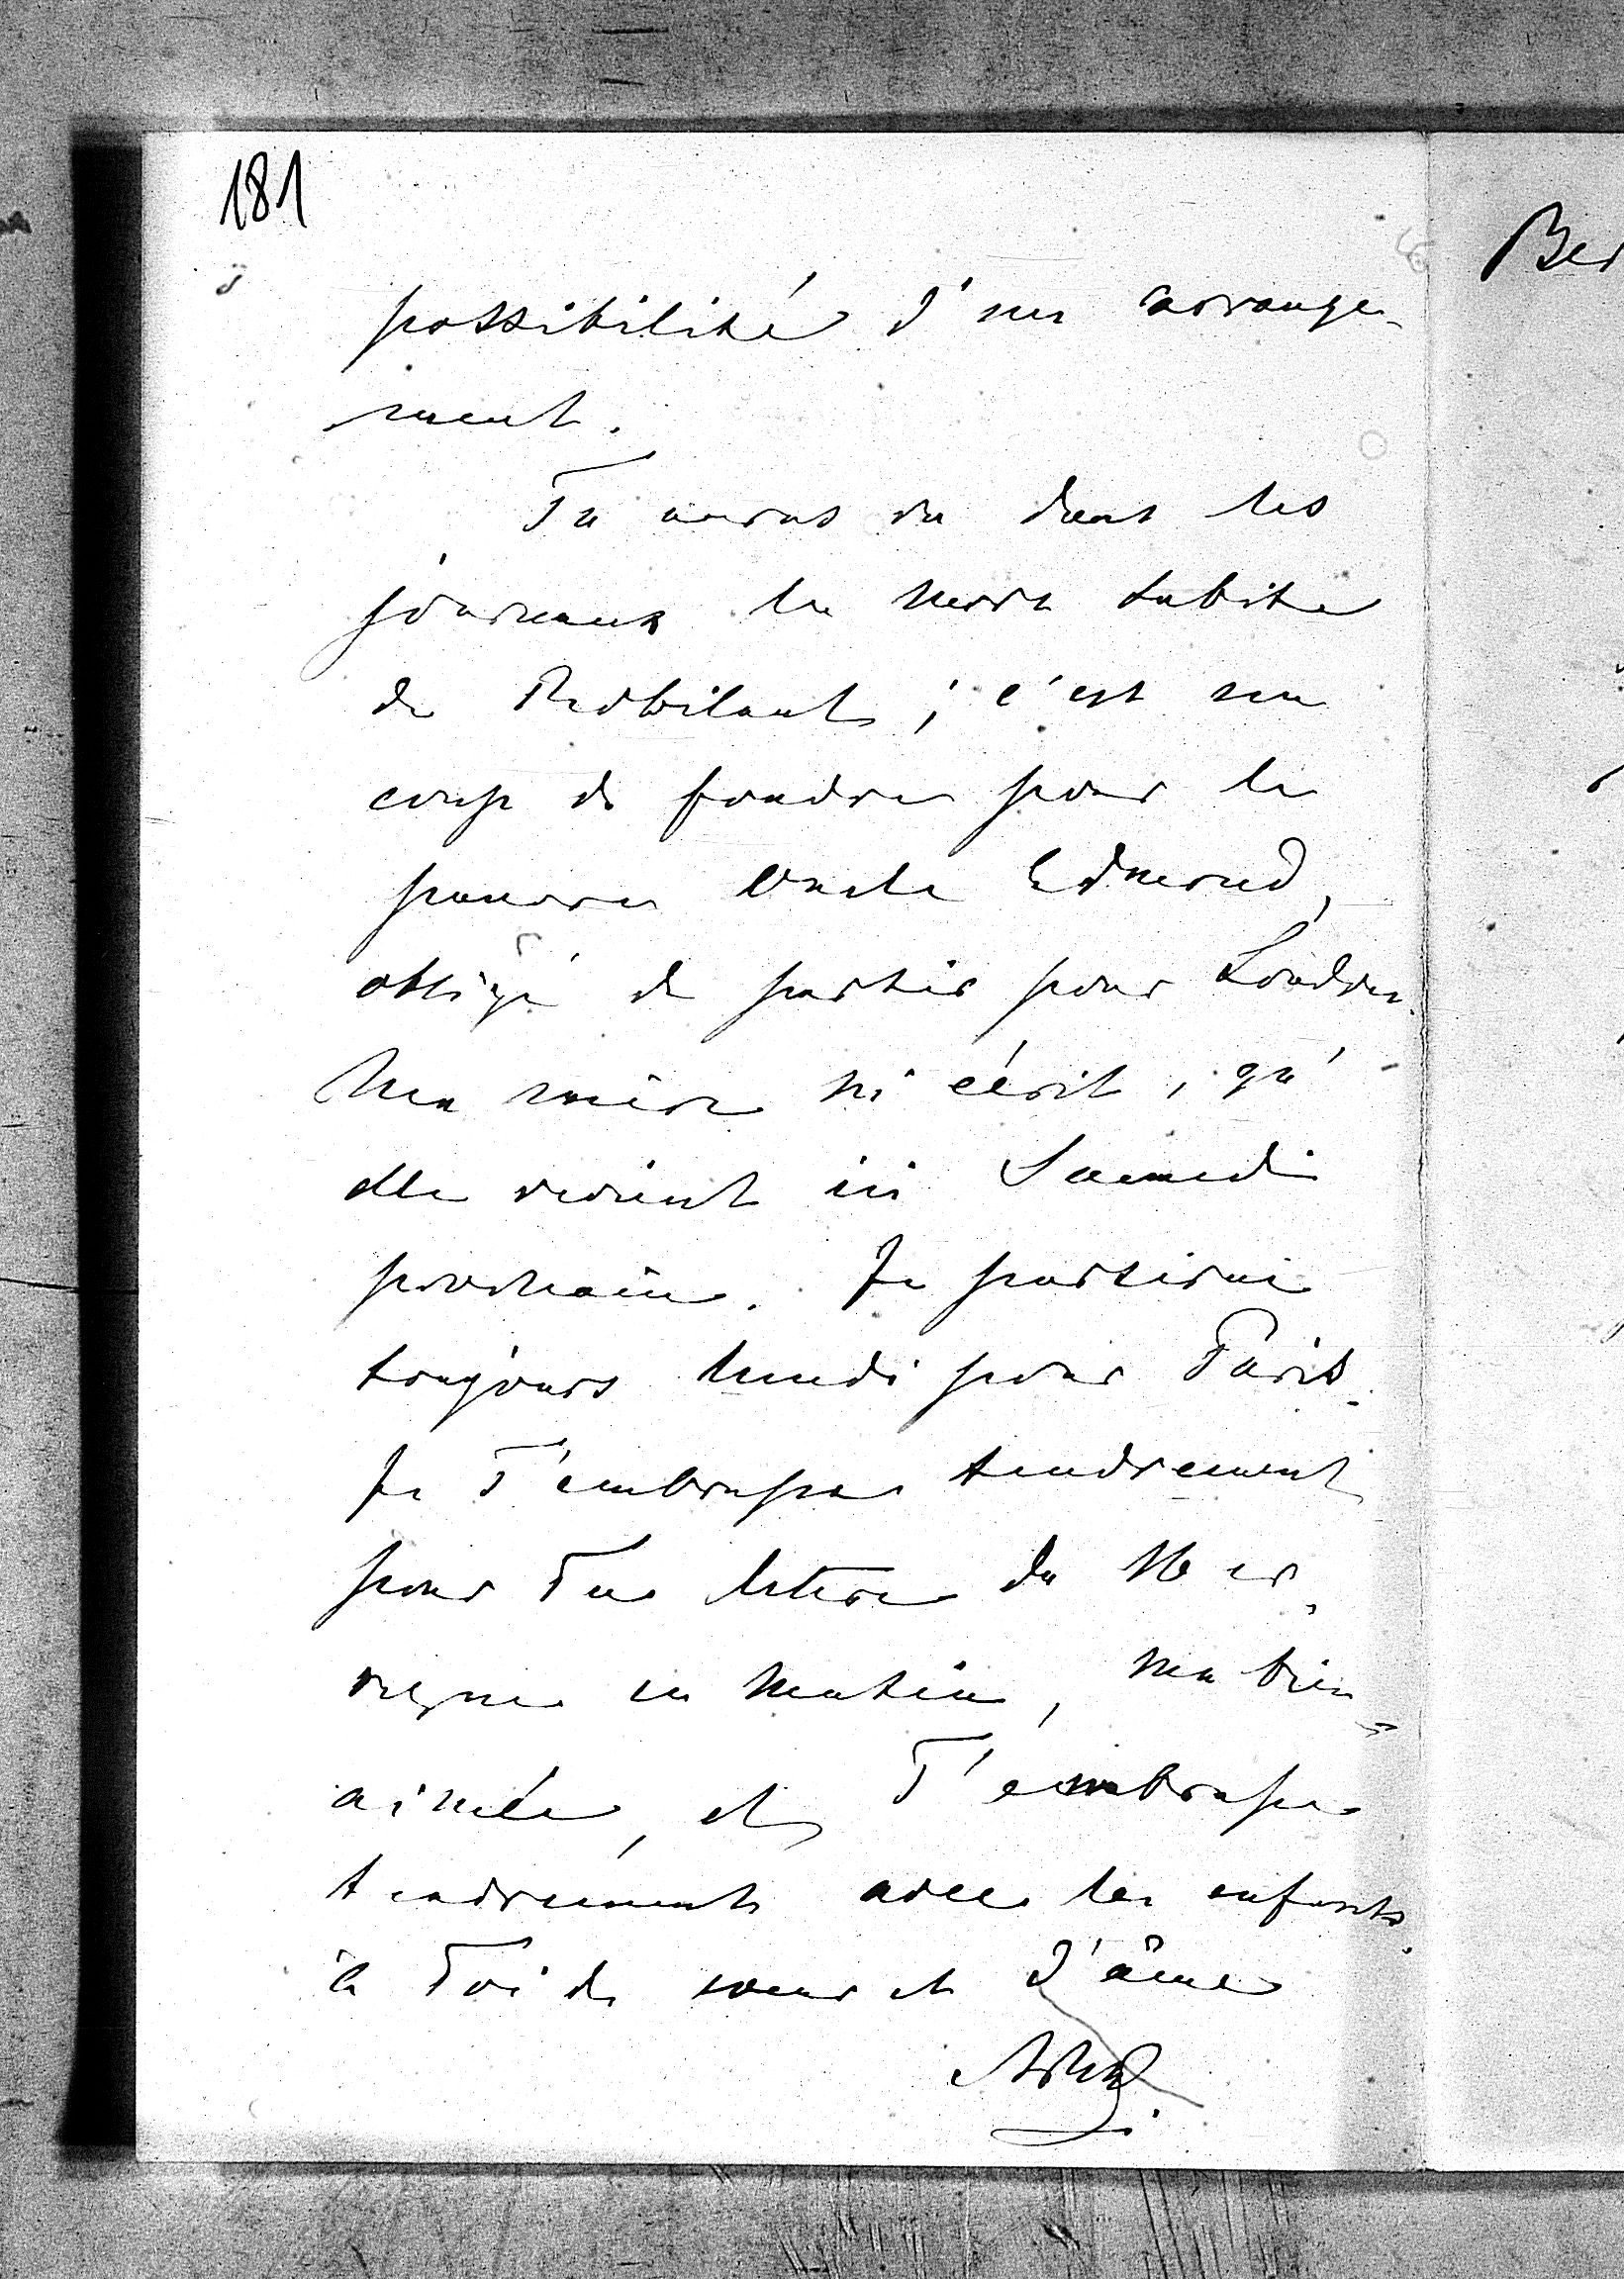 181
possibilité d'un arrange-
ment.
Tu auras vu dans les
journaux la mort subite
de Robilant; c'est un
coup de foudre pour le
pauvre Oncle Edmond,
obligé de partir pour Londres.
Ma mère m'écrit, qu'
elle revient ici Samedi
prochain. Je partirai
toujours lundi pour Paris.
Je T'embrasse tendrement
pour Ta lettre du 16
reçue ce matin, ma bien-
aimée, et T'embrasse
tendrement avec les enfants.
à Toi de coeur et d'âme
Ber